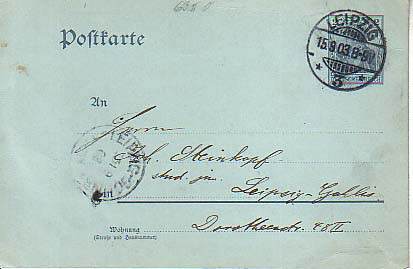 Postkarte
LEIPZIG
15.9.03.8-9
5
An
Herrn
Steinkopf
stud. jur.
in
Leipzig-Gohlis
Wohnung
(Straße und Hausnummer)
Dorotheenstr.